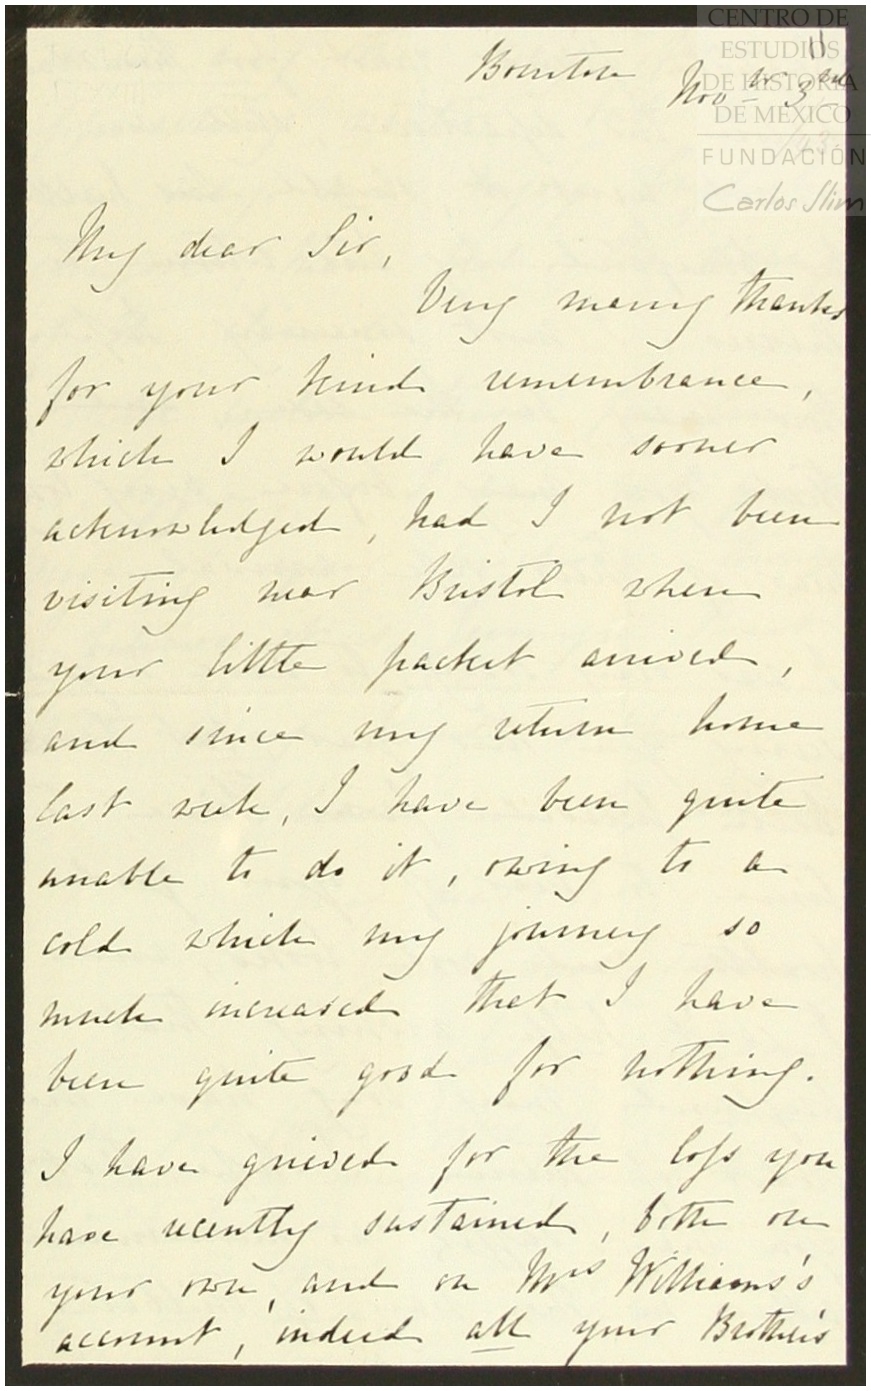 CENTRO DE
ESTUDIOS
DE HISTORIA
DE MÉXICO
FUNDACIÓN
Carlos Slim
11
Nov.br 3rd
My dear Sir,
Very many thanks
for your kind remembrance,
which I would have sooner
acknowledged, had I not been
visiting near Bristol when
your little packet arrived,
and since my return home
last week, I have been quite
unable to do it, owing to a
cold which my journey so
much increased that I have
been quite good for nothing.
I have grieved for the loss you
have recently sustained, both on
your own, and on Mrs Williams's
account, indeed all your Brother's